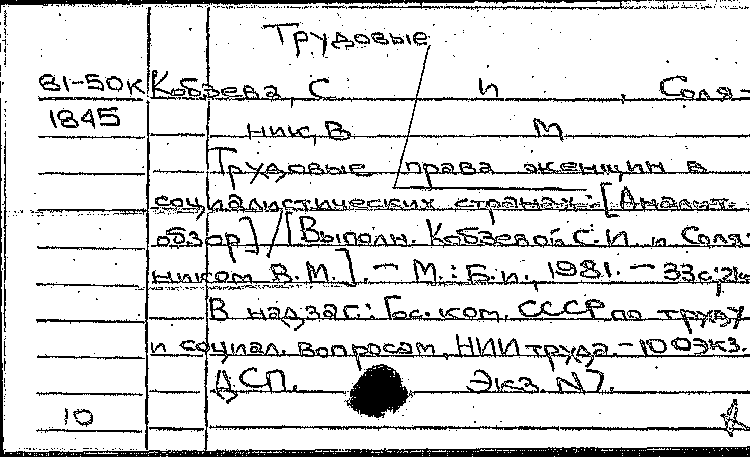 Трудовые
81-50к Кобзева, С И , Соля-
1845 ник, В М
Трудовые права женщин в
социалистических странах: [Аналит.
обзор] / [Выполн. Кобзевой С.И. и Соля-
ником В.М.]. – М.: Б.и., 1981. – 33 с.;
В надзаг.: Гос. ком. СССР по труду
и социал. вопросам, НИИ труда. – 100 экз.
ДСП. Экз. N 7.
10